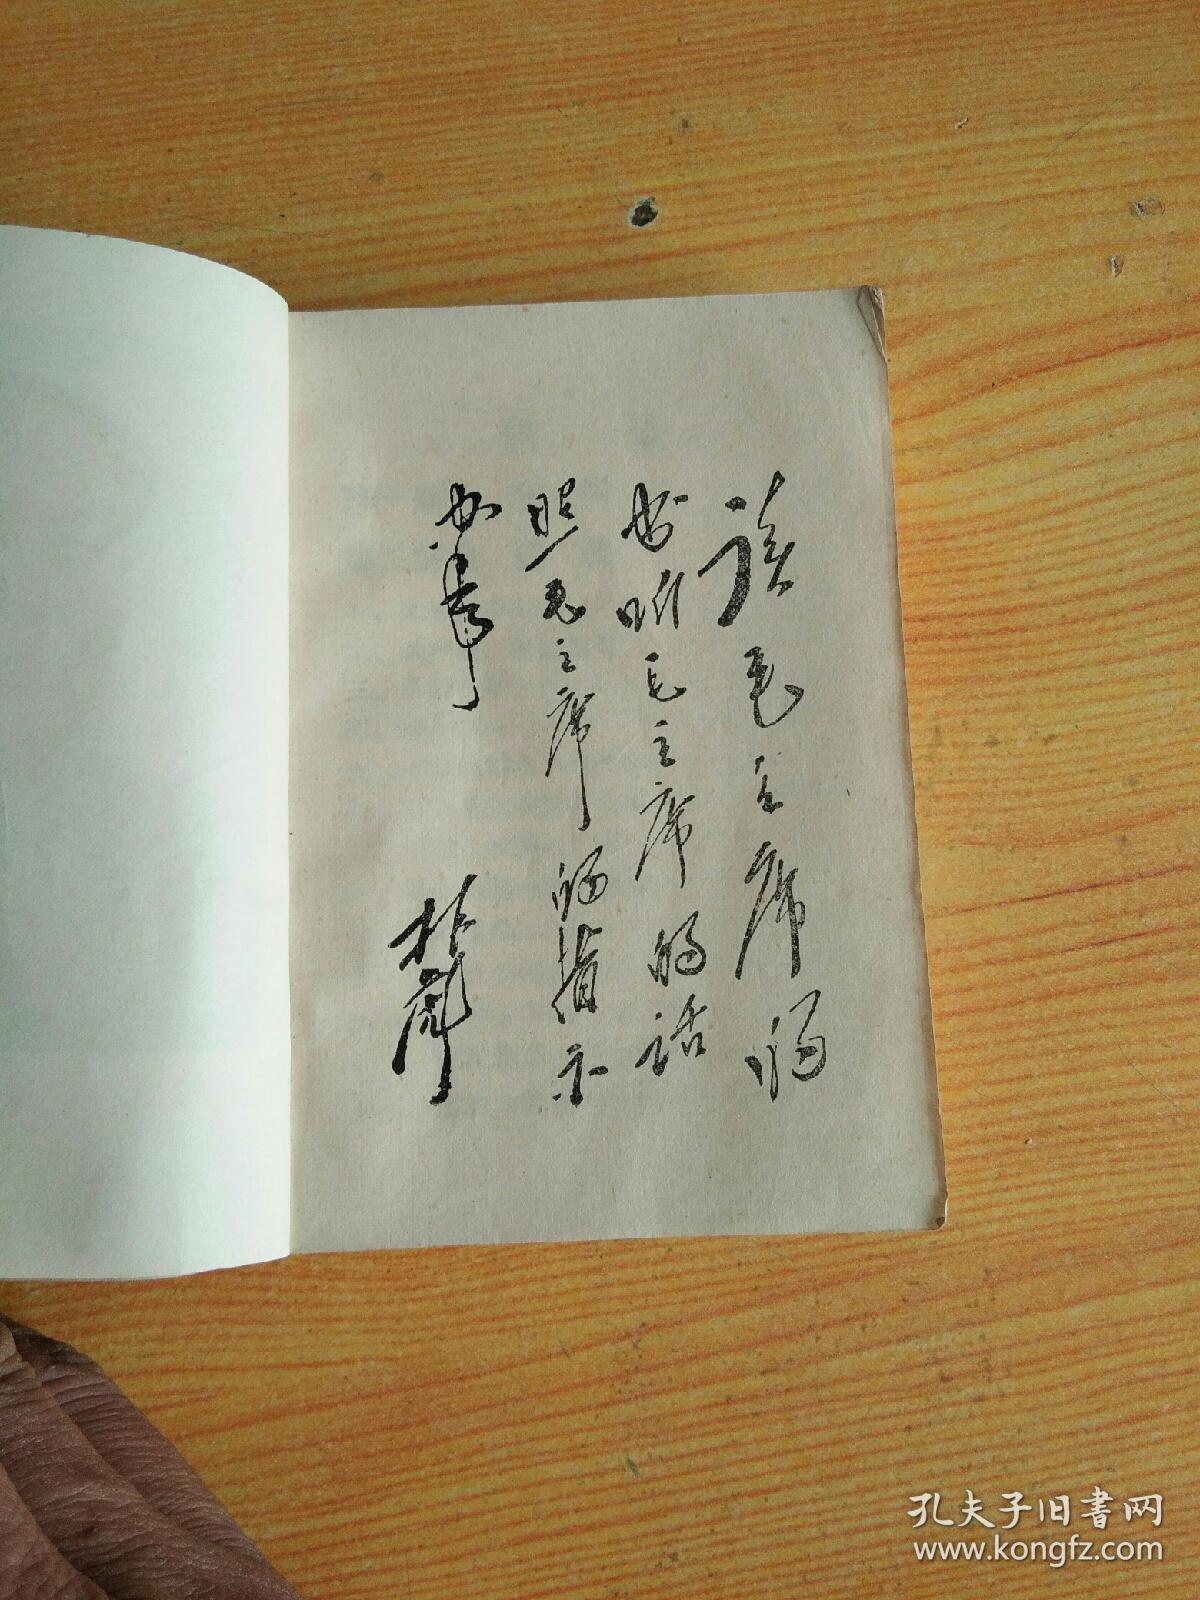 读毛主席的
书听毛主席的话
照毛主席的指示
办事
林彪
孔夫子旧書网
www.kongfz.com